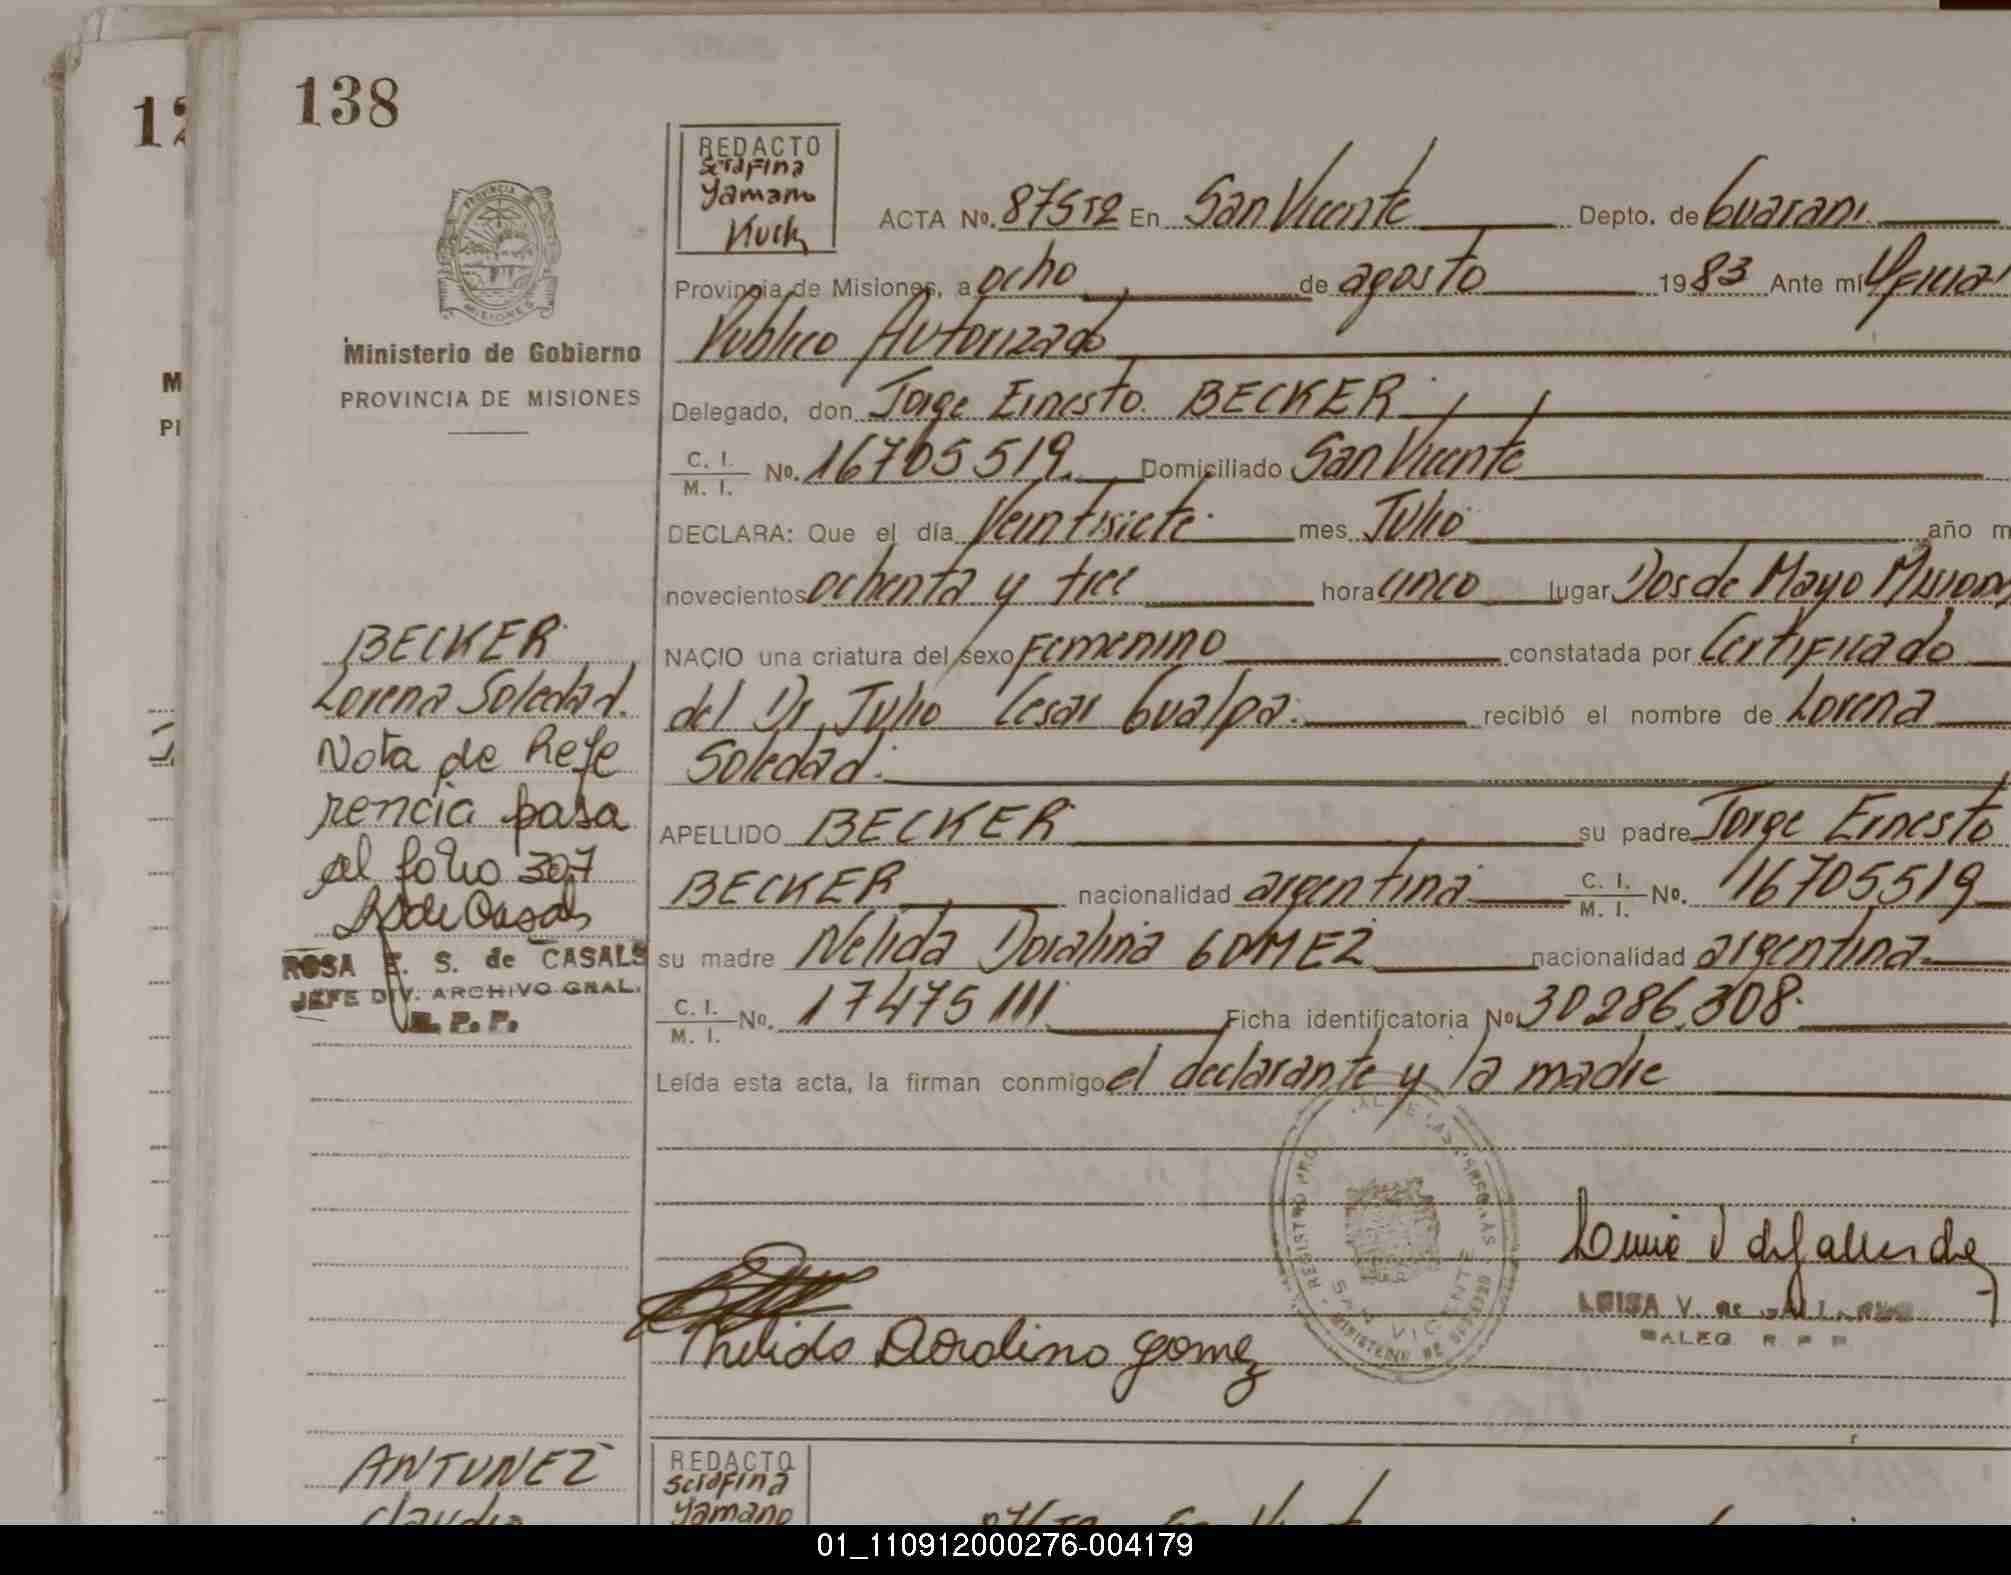 138
12
REDACTO
Serafina
Yamano
Kuch
ACTA No. 87512 En San Vicente Depto. de Guarani
Provincia de Misiones, a ocho de agosto 1983 Ante mí Oficial
Publico Autorizado
Ministerio de Gobierno
PROVINCIA DE MISIONES
M
PI
Delegado, don Jorge Ernesto BECKER
C. I.
M. I. No. 16705519 Domiciliado San Vicente
DECLARA: Que el día Veintisiete mes Julio año m
novecientos ochenta y tres hora cinco lugar Dos de Mayo Misiones
NACIO una criatura del sexo Femenino constatada por Certificado
del Dr Julio Cesar Gualpa. recibió el nombre de Lorena
Soledad.
APELLIDO BECKER su padre Jorge Ernesto
BECKER nacionalidad argentina C. I.
M. I. No. 16705519
su madre Nelida Doralina GOMEZ nacionalidad argentina
C. I.
M. I. No. 17475111 Ficha identificatoria No. 30286.308.
Leída esta acta, la firman conmigo el declarante y la madre
BECKER
Lorena Soledad.
Nota de Refe
rencia pasa
al folio 307
ROSA E. S. de CASALS
JEFE DIV. ARCHIVO GRAL.
R. P. P.
SAN VICENTE
Nelida Doralina gomez
LUISA V. de
R. P. P.
ANTUNEZ
Claudia
REDACTO
Serafina
Yamano
01_110912000276-004179